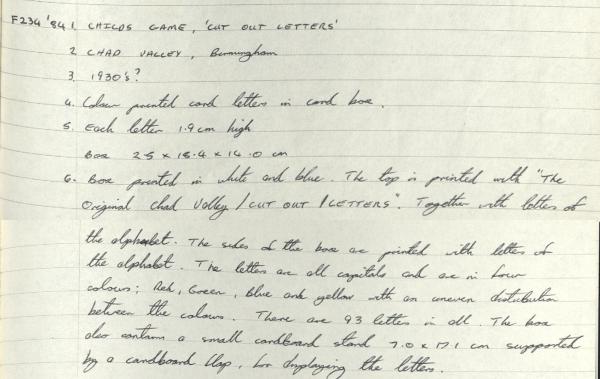 F234 '84 1. CHILDS GAME, 'CUT OUT LETTERS'
2 CHAD VALLEY, Birmingham
3. 1930's?
4. Colour printed card letters in card box.
5. Each letter 1.9 cm high
Box 2.5 x 18.4 x 14.0 cm
6. Box printed in white and blue. The top is printed with "The
Original Chad Valley / CUT OUT / LETTERS". Together with letters of
the alphabet. The sides of the box are printed with letters of
the alphabet. The letters are all capitals and are in four
colours; Red, Green, Blue and yellow with an uneven distribution
between the colours. There are 93 letters in all. The box
also contains a small cardboard stand 7.0 x 17.1 cm supported
by a cardboard flap, for displaying the letters.